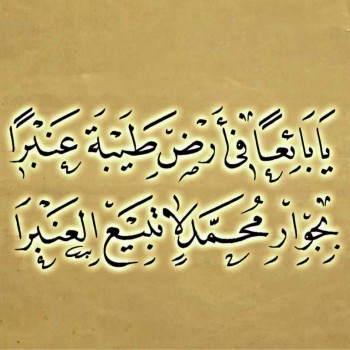 يَا بَائِعًا فِي أَرْضِ طَيْبَةَ عَنْبَرًا
بِجِوَارِ مُحَمَّدٍ لَا تَبِيعُ الْعَنْبَرَا